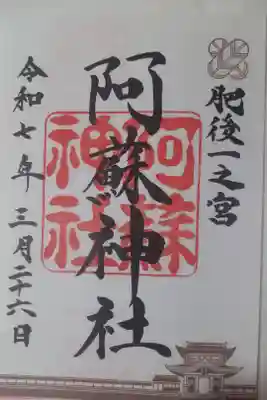 肥後一之宮
阿蘇神社
阿蘇神社
令和七年 三月二十六日